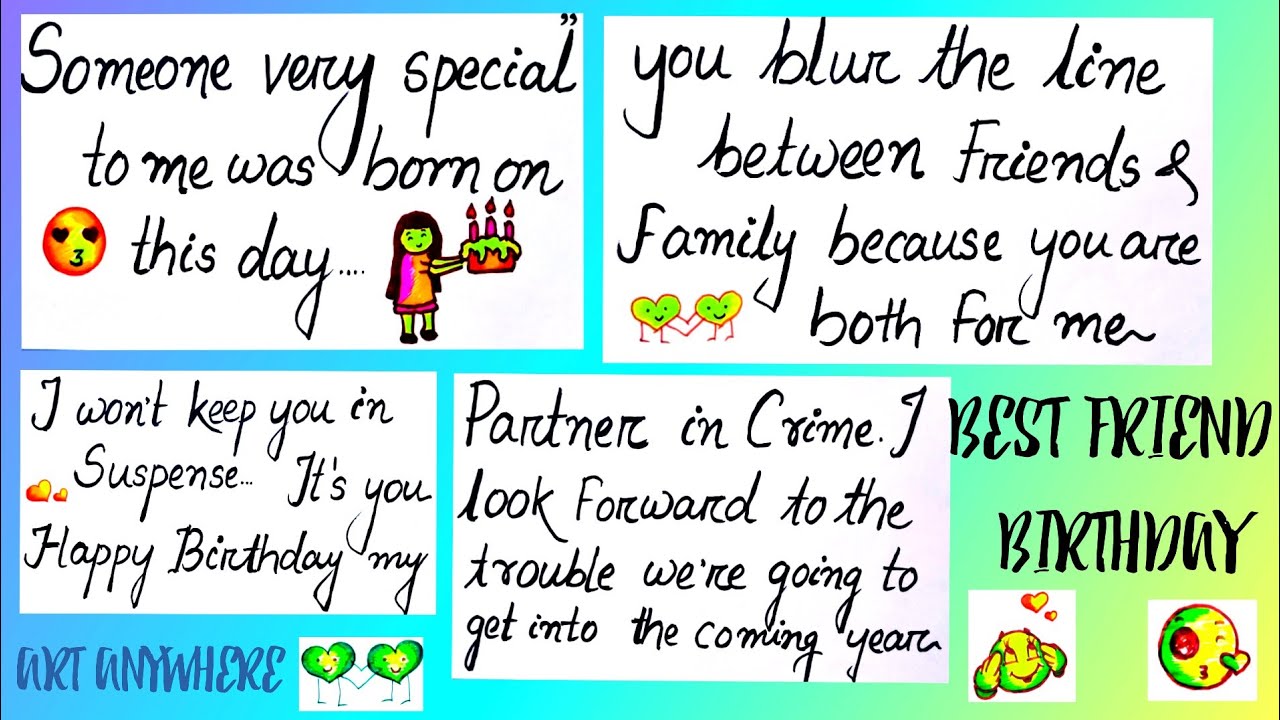 Someone very special”
to me was born on
this day....
you blur the line
between Friends &
Family because you are
both for me
I won't keep you in
Suspense... It's you
Happy Birthday my
Partner in Crime. I
look Forward to the
trouble we're going to
get into the coming year
BEST FRIEND
BIRTHDAY
ART ANYWHERE